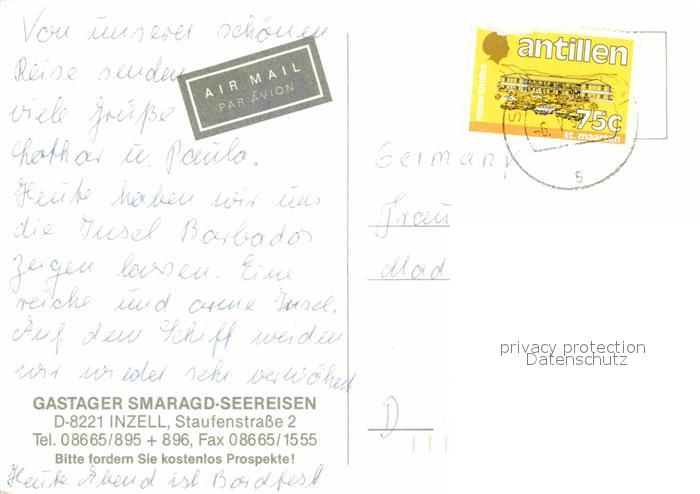 Von unserer schönen
Reise senden
viele Grüße
Lothar u. Paula.
Heute haben wir uns
die Insel Barbados
zeigen lassen. Eine
reiche und arme Insel.
Auf dem Schiff werden
wir wieder sehr verwöhnt
GASTAGER SMARAGD-SEEREISEN
D-8221 INZELL, Staufenstraße 2
Tel. 08665/895 + 896, Fax 08665/1555
Bitte fordern Sie kostenlos Prospekte!
Heute Abend ist Bordfest
AIR MAIL
PAR AVION
antillen
nederlandse
75c
st. maarten
5
Germany
Frau
D
privacy protection
Datenschutz